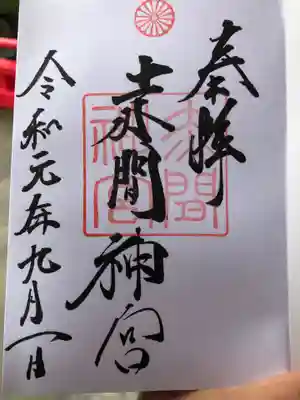 奉拝
赤間神宮
赤間
神宮
令和元年九月一日